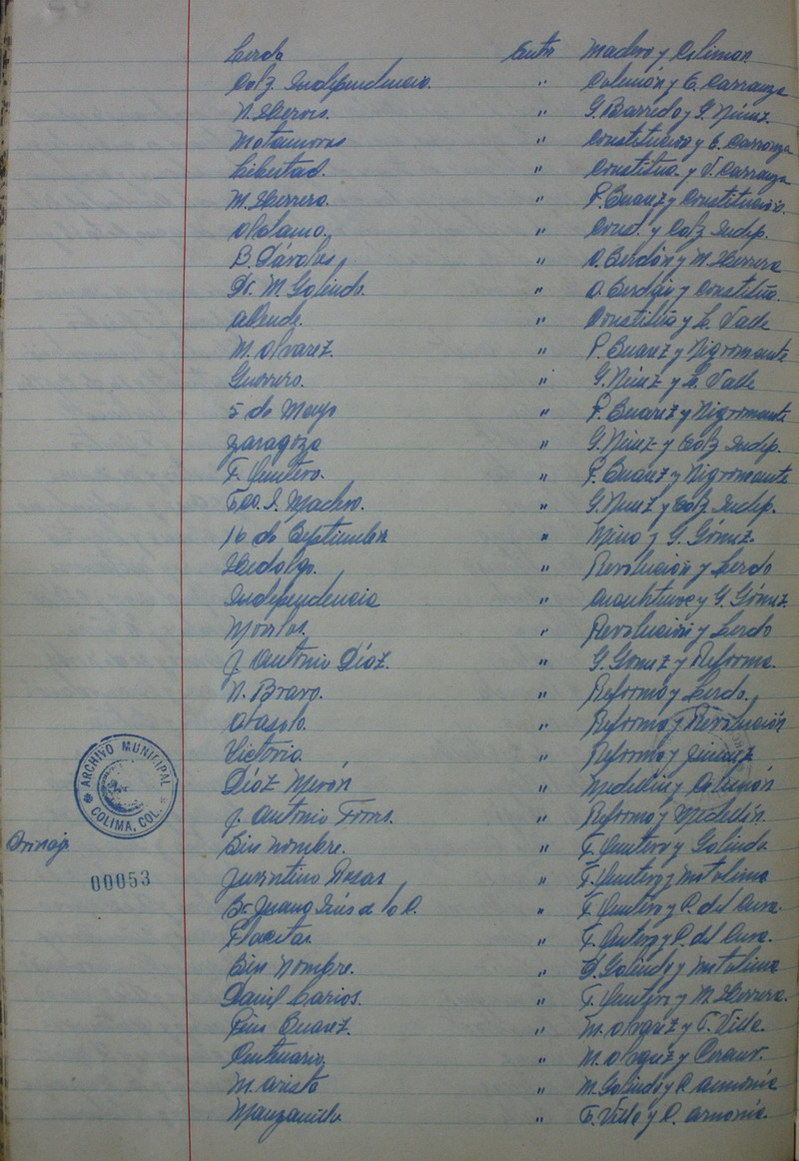 Lerdo Entre Madero y Colimán
Calz. Independencia. " Calimón y C. Carranza
N. Héroes. " G. Barreda y G. Núnez.
Matamoros " Constitucion y C. Carranza
Libertad. " Constitucn. y V. Carranza
M. Herrera. " P. Suarez y Constitución.
Alamo. " Const. y Calz Indep.
B. Dávalos, " A. Cerdán y M. Herrera
Dr. M. Galindo. " A. Cerdán y Constitón.
Allende. " Constitón y L. Valle
M. Alvarez. " P. Suarez y Nigromante
Guerrero. " G. Núnez y L. Valle
5 de Mayo " P. Suarez y Nigromante
Zaragoza " G. Núnez y Calz Indep.
F. Quintero. " P. Suarez y Nigromante
Fco. I. Madero. " G. Nunez y Calz Indep.
16 de Septiembre " y G. Gómez.
Hidalgo. " Revolución y Lerdo
Independencia " Cuauhtemoc y G. Gómez.
Morelos. " Revolución y Lerdo
J. Antonio Díaz. " G. Gómez y Reforma.
N. Bravo. " Reforma y Lerdo.
Abasolo. " Reforma y Revolución
Victoria. " Reforma y Jimenez
Díaz Mirón " Medellin y
J. Antonio Torres. " Reforma y Medellín.
Sin nombre. " F. Quintero y Galindo
Juventino Rosas " F. Quintero y
Sr Juana Inés de la C. " F. Quintero y P. del Cura.
" F. Quintero y P. del Cura.
Sin Nombre. " G. Galindo y
Daniel Larios. " F. Quintero y M. Herrera.
Pino Suarez. " M. Alvarez y F. Villa.
Centenario " M. Alvarez y
" M. Galindo y P. armonía
Manzanillo " F. Villa y P. armonía.
ARCHIVO MUNICIPAL
COLIMA, COL.
00053